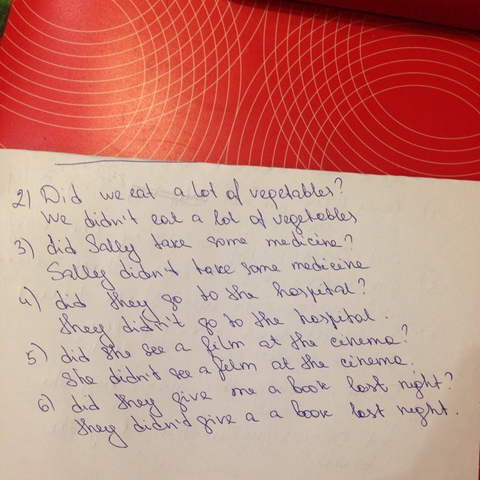 2) Did we eat a lot of vegetables?
We didn't eat a lot of vegetables
3) did Sally take some medicine?
Sally didn't take some medicine
4) did they go to the hospital?
they didn't go to the hospital.
5) did she see a film at the cinema?
she didn't see a film at the cinema.
6) did they give me a book last night?
they didn't give a a book last night.